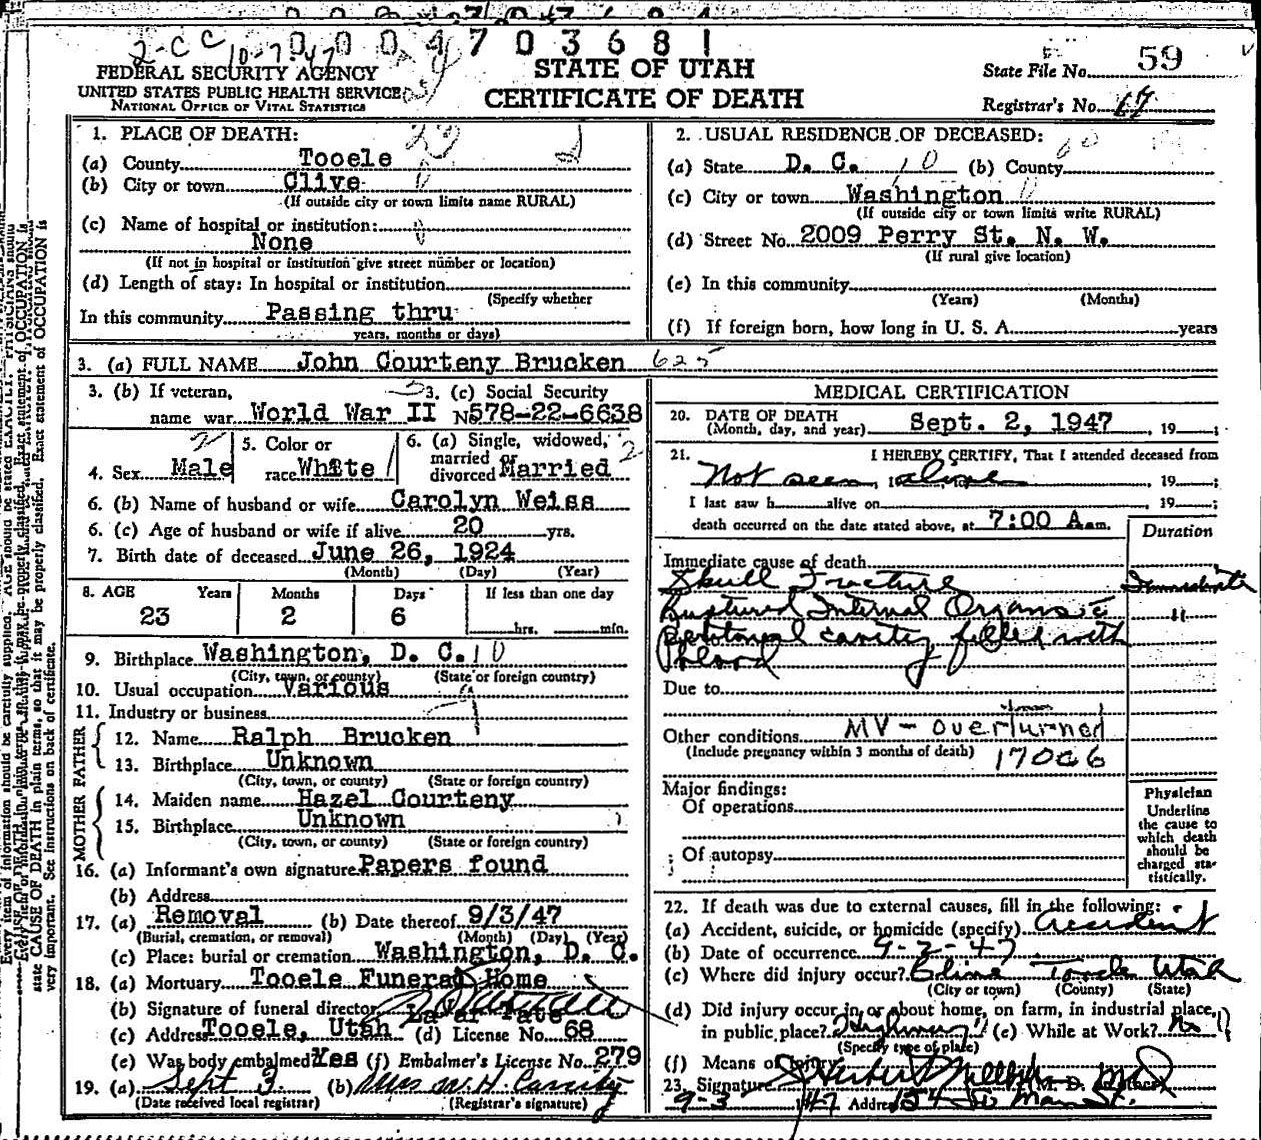 2-CC 10-7-47
0004703681
FEDERAL SECURITY AGENCY
UNITED STATES PUBLIC HEALTH SERVICE
NATIONAL OFFICE OF VITAL STATISTICS
STATE OF UTAH
CERTIFICATE OF DEATH
State File No. 59
Registrar's No. 17
1. PLACE OF DEATH:
(a) County Tooele
(b) City or town Clive
(If outside city or town limits name RURAL)
(c) Name of hospital or institution:
None
(If not in hospital or institution give street number or location)
(d) Length of stay: In hospital or institution
(Specify whether
In this community Passing thru
years, months or days)
2. USUAL RESIDENCE OF DECEASED:
(a) State D. C. 10 (b) County
(c) City or town Washington
(If outside city or town limits write RURAL)
(d) Street No. 2009 Perry St. N. W.
(If rural give location)
(e) In this community
(Years) (Months)
(f) If foreign born, how long in U. S. A. years
3. (a) FULL NAME John Courteny Brucken 625
3. (b) If veteran, 3. (c) Social Security
name war World War II No 578-22-6638
4. Sex Male
5. Color or
race White
6. (a) Single, widowed,
married or
divorced Married
6. (b) Name of husband or wife Carolyn Weiss
6. (c) Age of husband or wife if alive 20 yrs.
7. Birth date of deceased June 26, 1924
(Month) (Day) (Year)
8. AGE Years Months Days If less than one day
23 2 6 hrs. min.
9. Birthplace Washington, D. C. 10
(City, town, or county) (State or foreign country)
10. Usual occupation Various
11. Industry or business
FATHER
12. Name Ralph Brucken
13. Birthplace Unknown
(City, town, or county) (State or foreign country)
MOTHER
14. Maiden name Hazel Courteny
15. Birthplace Unknown
(City, town, or county) (State or foreign country)
16. (a) Informant's own signature Papers found
(b) Address
17. (a) Removal (b) Date thereof 9/3/47
(Burial, cremation, or removal) (Month) (Day) (Year)
(c) Place: burial or cremation Washington, D. C.
18. (a) Mortuary Tooele Funeral Home
(b) Signature of funeral director
(c) Address Tooele, Utah (d) License No. 68
(e) Was body embalmed Yes (f) Embalmer's License No. 279
19. (a) Sept 3 (b) Mrs W. H. Cassity
(Date received local registrar) (Registrar's signature)
MEDICAL CERTIFICATION
20. DATE OF DEATH
(Month, day, and year) Sept. 2, 1947, 19
21. I HEREBY CERTIFY, That I attended deceased from
Not seen alive, 19
I last saw h alive on , 19
death occurred on the date stated above, at 7:00 A m.
Duration
Immediate cause of death
Skull Fracture Immediate
Ruptured Internal Organs c̄ "
Peritoneal cavity filled with
blood
Due to
Other conditions MV - overturned
(Include pregnancy within 3 months of death) 170c6
Major findings:
Of operations
Of autopsy
Physician
Underline
the cause to
which death
should be
charged sta-
tistically.
22. If death was due to external causes, fill in the following:
(a) Accident, suicide, or homicide (specify) accident
(b) Date of occurrence 9-2-47
(c) Where did injury occur? Clive Tooele Utah
(City or town) (County) (State)
(d) Did injury occur in or about home, on farm, in industrial place,
in public place? Highway (e) While at Work? No
(Specify type of place)
(f) Means of injury
23. Signature (M. D. or other)
9-3 1947 Address 154 So Main St.
Every item of information should be carefully supplied. AGE should be stated EXACTLY. PHYSICIANS should
state CAUSE OF DEATH in plain terms, so that it may be properly classified. Exact statement of OCCUPATION is
very important. See instructions on back of certificate.